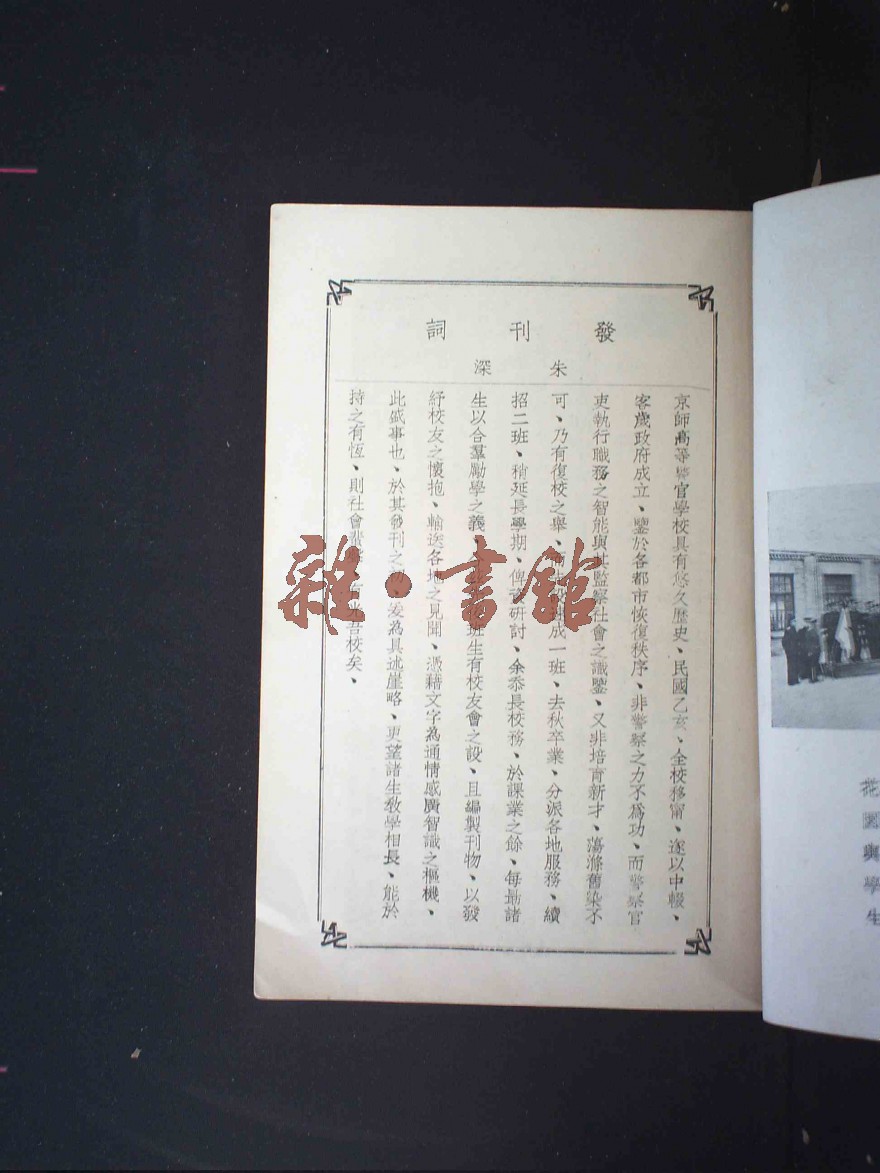 發刊詞
朱深
京師高等警官學校具有悠久歷史、民國乙亥、全校移甯、遂以中輟、
客歲政府成立、鑒於各都市恢復秩序、非警察之力不為功、而警察官
吏執行職務之智能與其監察社會之識鑒、又非培育新才、蕩滌舊染不
可、乃有復校之舉、成一班、去秋卒業、分派各地服務、續
招二班、稍延長學期、俾研討、余忝長校務、於課業之餘、每勗諸
生以合羣勵學之義、班生有校友會之設、且編製刊物、以發
紓校友之懷抱、輸送各地之見聞、憑藉文字為通情感廣智識之樞機、
此盛事也、於其發刊之、爰為具述崖略、更望諸生教學相長、能於
持之有恆、則社會吾校矣、
雜·書館
花園與學生